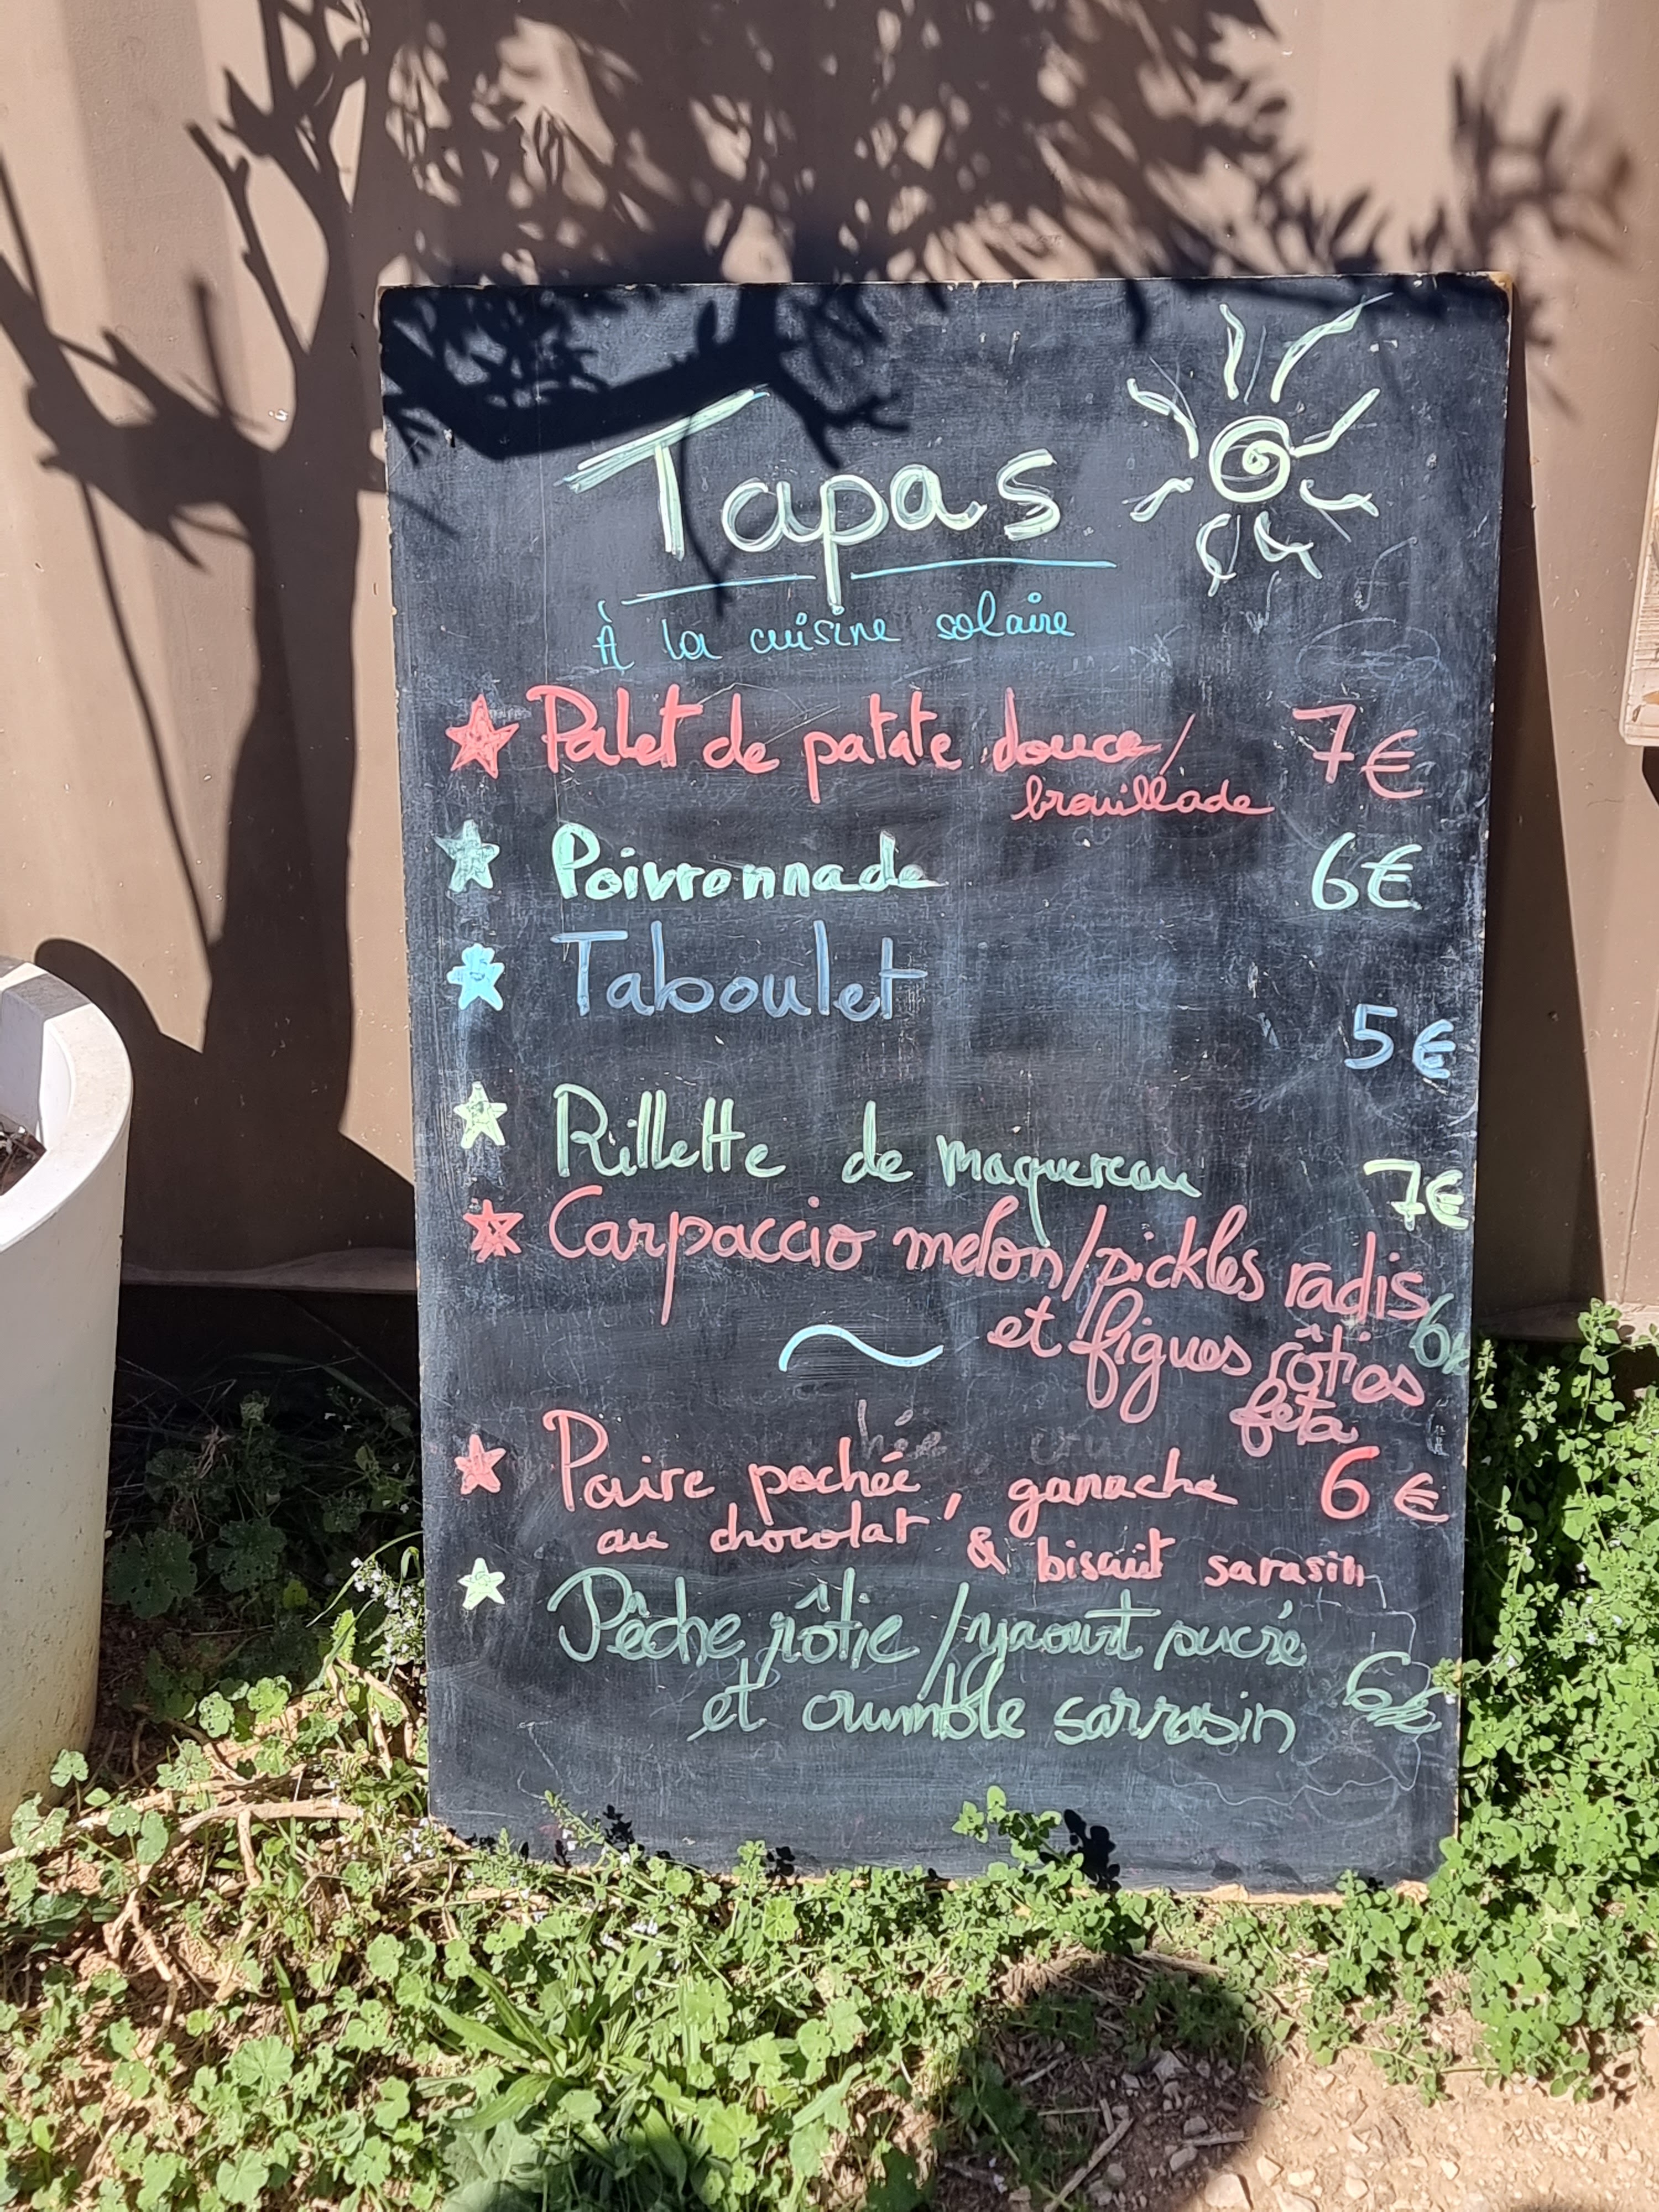 Tapas
À la cuisine solaire
Palet de patate douce / 7€
brouillade
Poivronnade 6€
Taboulet
5€
Rillette de maquereau 7€
Carpaccio melon/pickles radis
et figues rôties 6€
feta
Poire pochée, ganache 6€
au chocolat & biscuit sarasin
Pêche rôtie / yaourt sucré
et crumble sarrasin 6€